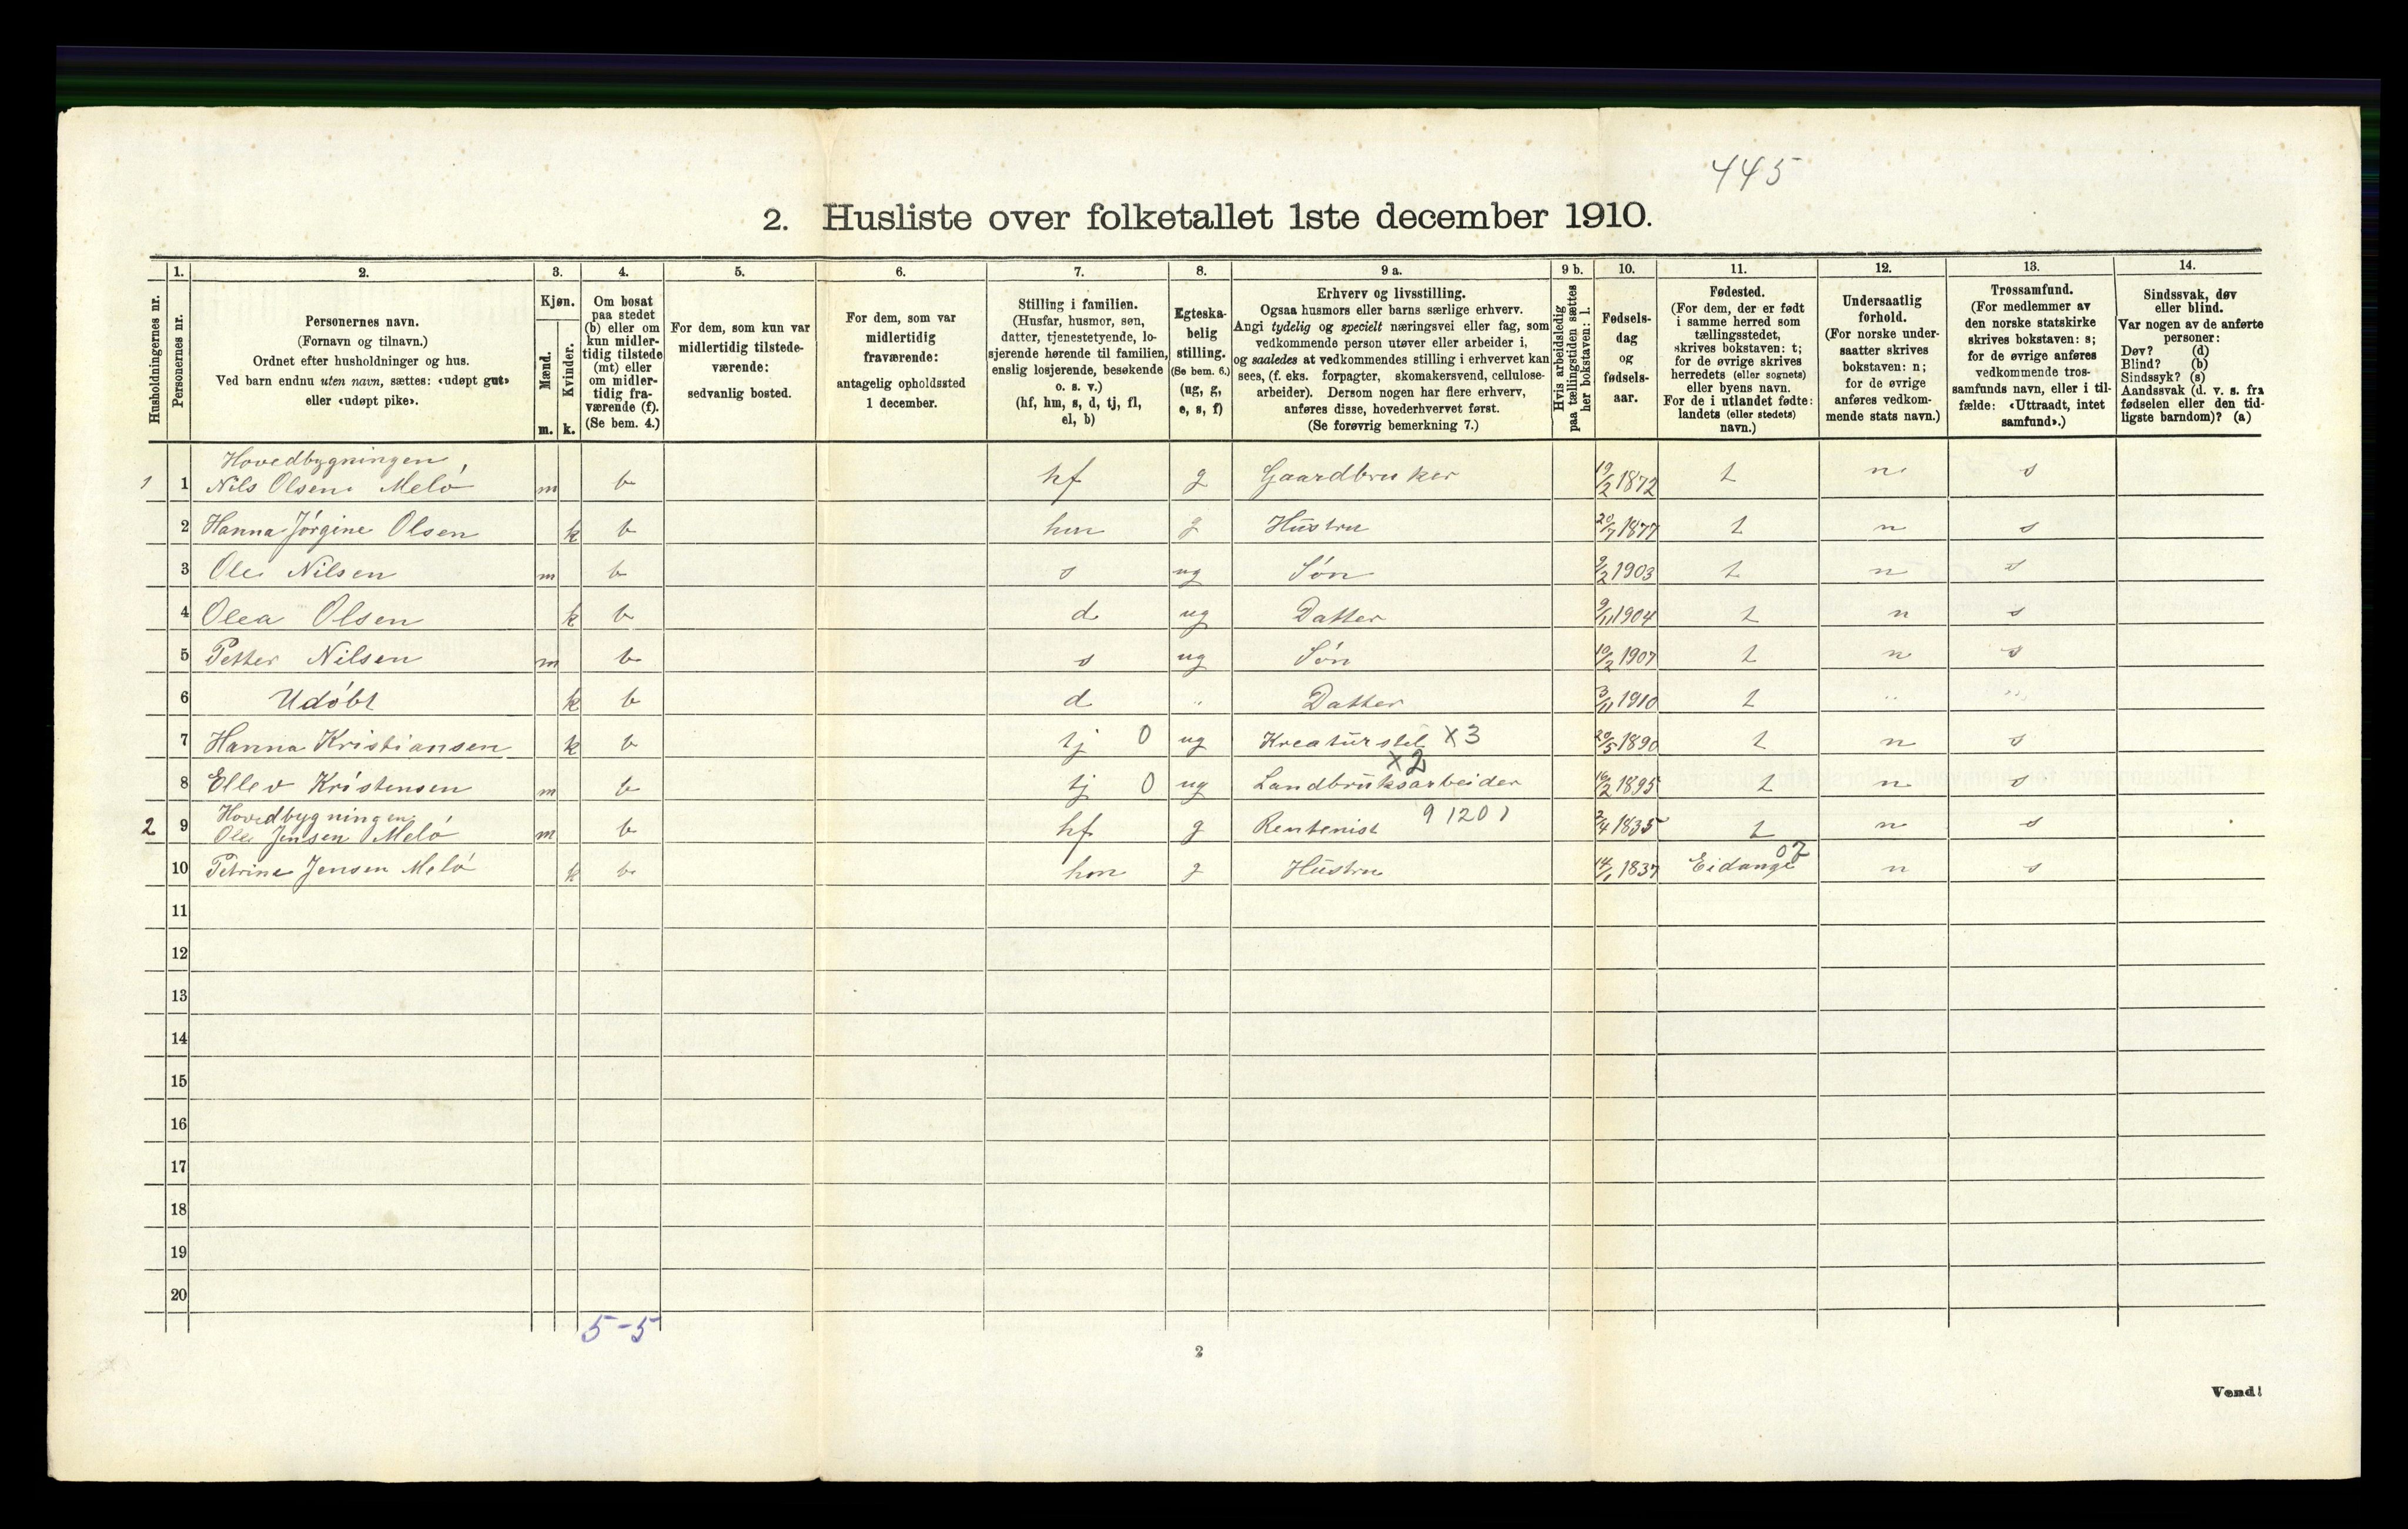 445
2. Husliste over folketallet 1ste december 1910.
Husholdningernes nr.
1.
Personernes nr.
2.
Personernes navn.
(Fornavn og tilnavn.)
Ordnet efter husholdninger og hus.
Ved barn endnu uten navn, sættes: «udøpt gut»
eller «udøpt pike».
3.
Kjøn.
Mænd.
Kvinder.
m. k.
4.
Om bosat
paa stedet
(b) eller om
kun midler-
tidig tilstede
(mt) eller
om midler-
tidig fra-
værende (f).
(Se bem. 4.)
5.
For dem, som kun var
midlertidig tilstede-
værende:
sedvanlig bosted.
6.
For dem, som var
midlertidig
fraværende:
antagelig opholdssted
1 december.
7.
Stilling i familien.
(Husfar, husmor, søn,
datter, tjenestetyende, lo-
sjerende hørende til familien,
enslig losjerende, besøkende
o. s. v.)
(hf, hm, s, d, tj, fl,
el, b)
8.
Egteska-
belig
stilling.
(Se bem. 6.)
(ug, g,
e, s, f)
9 a.
Erhverv og livsstilling.
Ogsaa husmors eller barns særlige erhverv.
Angi tydelig og specielt næringsvei eller fag, som
vedkommende person utøver eller arbeider i,
og saaledes at vedkommendes stilling i erhvervet kan
sees, (f. eks. forpagter, skomakersvend, cellulose-
arbeider). Dersom nogen har flere erhverv,
anføres disse, hovederhvervet først.
(Se forøvrig bemerkning 7.)
9 b.
Hvis arbeidsledig
paa tællingstiden sættes
her bokstaven: l.
10.
Fødsels-
dag
og
fødsels-
aar.
11.
Fødested.
(For dem, der er født
i samme herred som
tællingsstedet,
skrives bokstaven: t;
for de øvrige skrives
herredets (eller sognets)
eller byens navn.
For de i utlandet fødte:
landets (eller stedets)
navn.)
12.
Undersaatlig
forhold.
(For norske under-
saatter skrives
bokstaven: n;
for de øvrige
anføres vedkom-
mende stats navn.)
13.
Trossamfund.
(For medlemmer av
den norske statskirke
skrives bokstaven: s;
for de øvrige anføres
vedkommende tros-
samfunds navn, eller i til-
fælde: «Uttraadt, intet
samfund».)
14.
Sindssvak, døv
eller blind.
Var nogen av de anførte
personer:
Døv? (d)
Blind? (b)
Sindssyk? (s)
Aandssvak (d. v. s. fra
fødselen eller den tid-
ligste barndom)? (a)
Hovedbygningen
1 1 Nils Olsen Meló m b hf g Gaardbruker 19/2 1872 t n s
2 Hanna Jórgine Olsen k b hm g Hustru 20/7 1877 t n s
3 Ole Nilsen m b s ug Són 9/2 1903 t n s
4 Olea Olsen k b d ug Datter 9/11 1904 t n s
5 Petter Nilsen m b s ug Són 10/2 1907 t n s
6 Udóbt k b d " Datter 3/11 1910 t " "
7 Hanna Kristiansen k b tj 0 ug Kreaturstel X3 20/5 1890 t n s
X2
8 Ellev Kristensen m b tj 0 ug Landbruksarbeider 16/2 1895 t n s
Hovedbygningen
2 9 Ole Jensen Meló m b hf g Rentenist 9 1201 2/4 1835 t n s
07
10 Petrine Jensen Meló k b hm g Hustru 14/1 1837 Eidange n s
11
12
13
14
15
16
17
18
19
20
5-5
2
Vend!